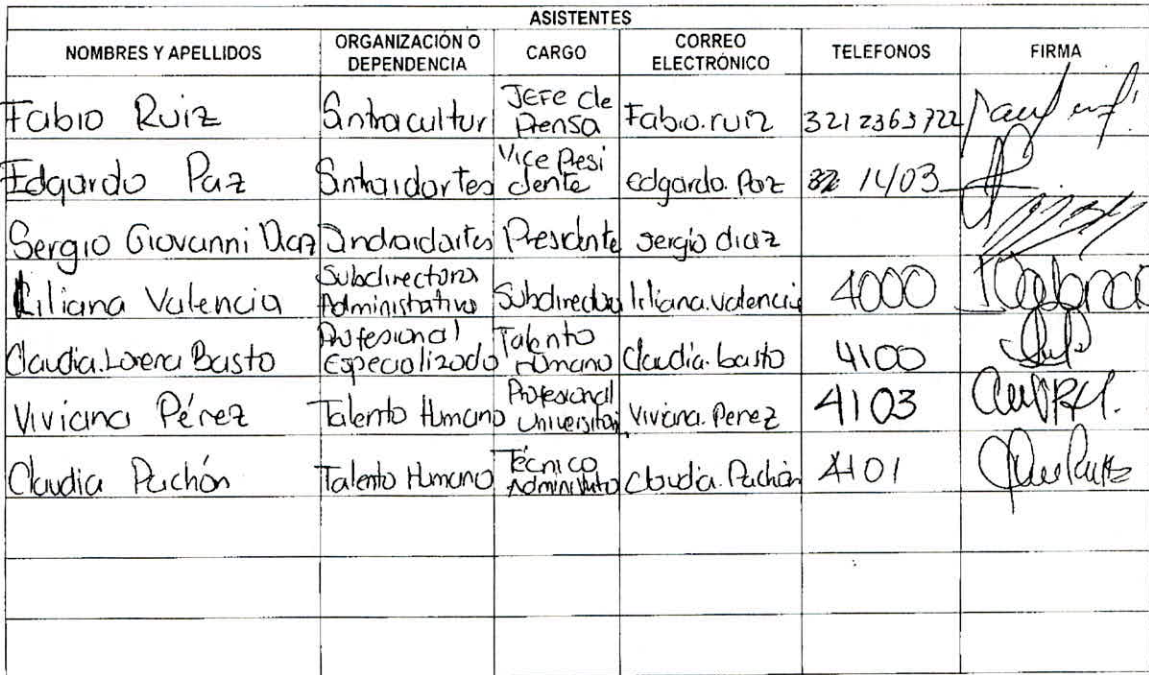 ASISTENTES
NOMBRES Y APELLIDOS ORGANIZACIÓN O DEPENDENCIA CARGO CORREO ELECTRÓNICO TELEFONOS FIRMA
Fabio Ruiz Sintracultur Jefe de Prensa Fabio.ruiz 3212363722
Edgardo Paz Sintraidartes Vice Presidente edgardo.Paz 14/03
Sergio Giovanni Diaz Presidente sergio diaz
Liliana Valencia Subdirectora Administrativa liliana.valencia 4000
Claudia Lorena Basto Profesional Especializado Talento Humano Claudia.basto 4100
Viviana Pérez Talento Humano Profesional Viviana.Perez 4103
Claudia Pachón Talento Humano Técnico Claudia.Pachón 4101